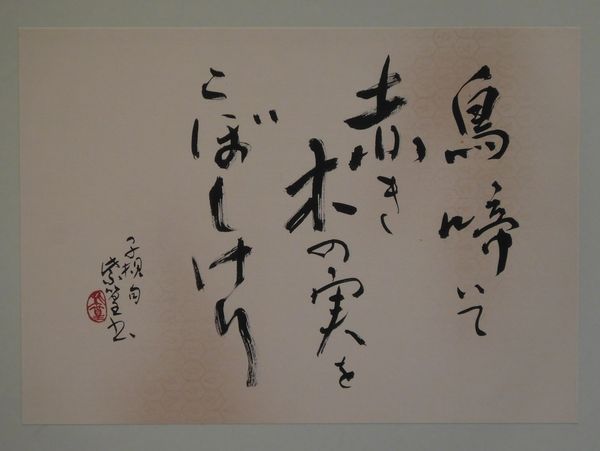 鳥啼いて
赤き
木の実を
こぼしけり
子規句
紫篁書